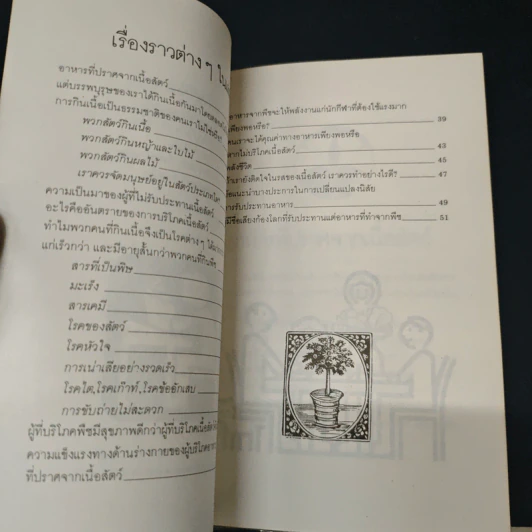 เรื่องราวต่าง ๆ
อาหารที่ปราศจากเนื้อสัตว์
แต่บรรพบุรุษของเราได้กินเนื้อกันมาโดย
การกินเนื้อเป็นธรรมชาติของคนเราไม่ใช่หรือ?
พวกสัตว์กินเนื้อ
พวกสัตว์กินหญ้าและใบไม้
พวกสัตว์กินผลไม้
เราควรจัดมนุษย์อยู่ในสัตว์ประเภทใด
ความเป็นมาของผู้ที่ไม่รับประทานเนื้อสัตว์
อะไรคืออันตรายของการบริโภคเนื้อสัตว์
ทำไมพวกคนที่กินเนื้อจึงเป็นโรคต่างๆ
แก่เร็วกว่า และมีอายุสั้นกว่าพวกคนที่กินพืช
สารที่เป็นพิษ
มะเร็ง
สารเคมี
โรคของสัตว์
โรคหัวใจ
การเน่าเสียอย่างรวดเร็ว
โรคไต,โรคเก๊าท์,โรคข้ออักเสบ
การขับถ่ายไม่สะดวก
ผู้ที่บริโภคพืชมีสุขภาพดีกว่าผู้ที่บริโภคเนื้อสัตว์
ความแข็งแรงทางด้านร่างกายของผู้บริโภคอาหาร
ที่ปราศจากเนื้อสัตว์
อาหารจากพืชจะให้พลังงานแก่นักกีฬาที่ต้องใช้แรงมาก
เพียงพอหรือ? 39
คนเราจะได้คุณค่าทางอาหารเพียงพอหรือ
หากไม่บริโภคเนื้อสัตว์ 43
พลังชีวิต 45
ถ้าเรายังติดใจในรสของเนื้อสัตว์ เราควรทำอย่างไรดี? 47
ข้อแนะนำบางประการในการเปลี่ยนแปลงนิสัย
การรับประทานอาหาร 49
ผู้มีชื่อเสียงก้องโลกที่รับประทานแต่อาหารที่ทำจากพืช 51